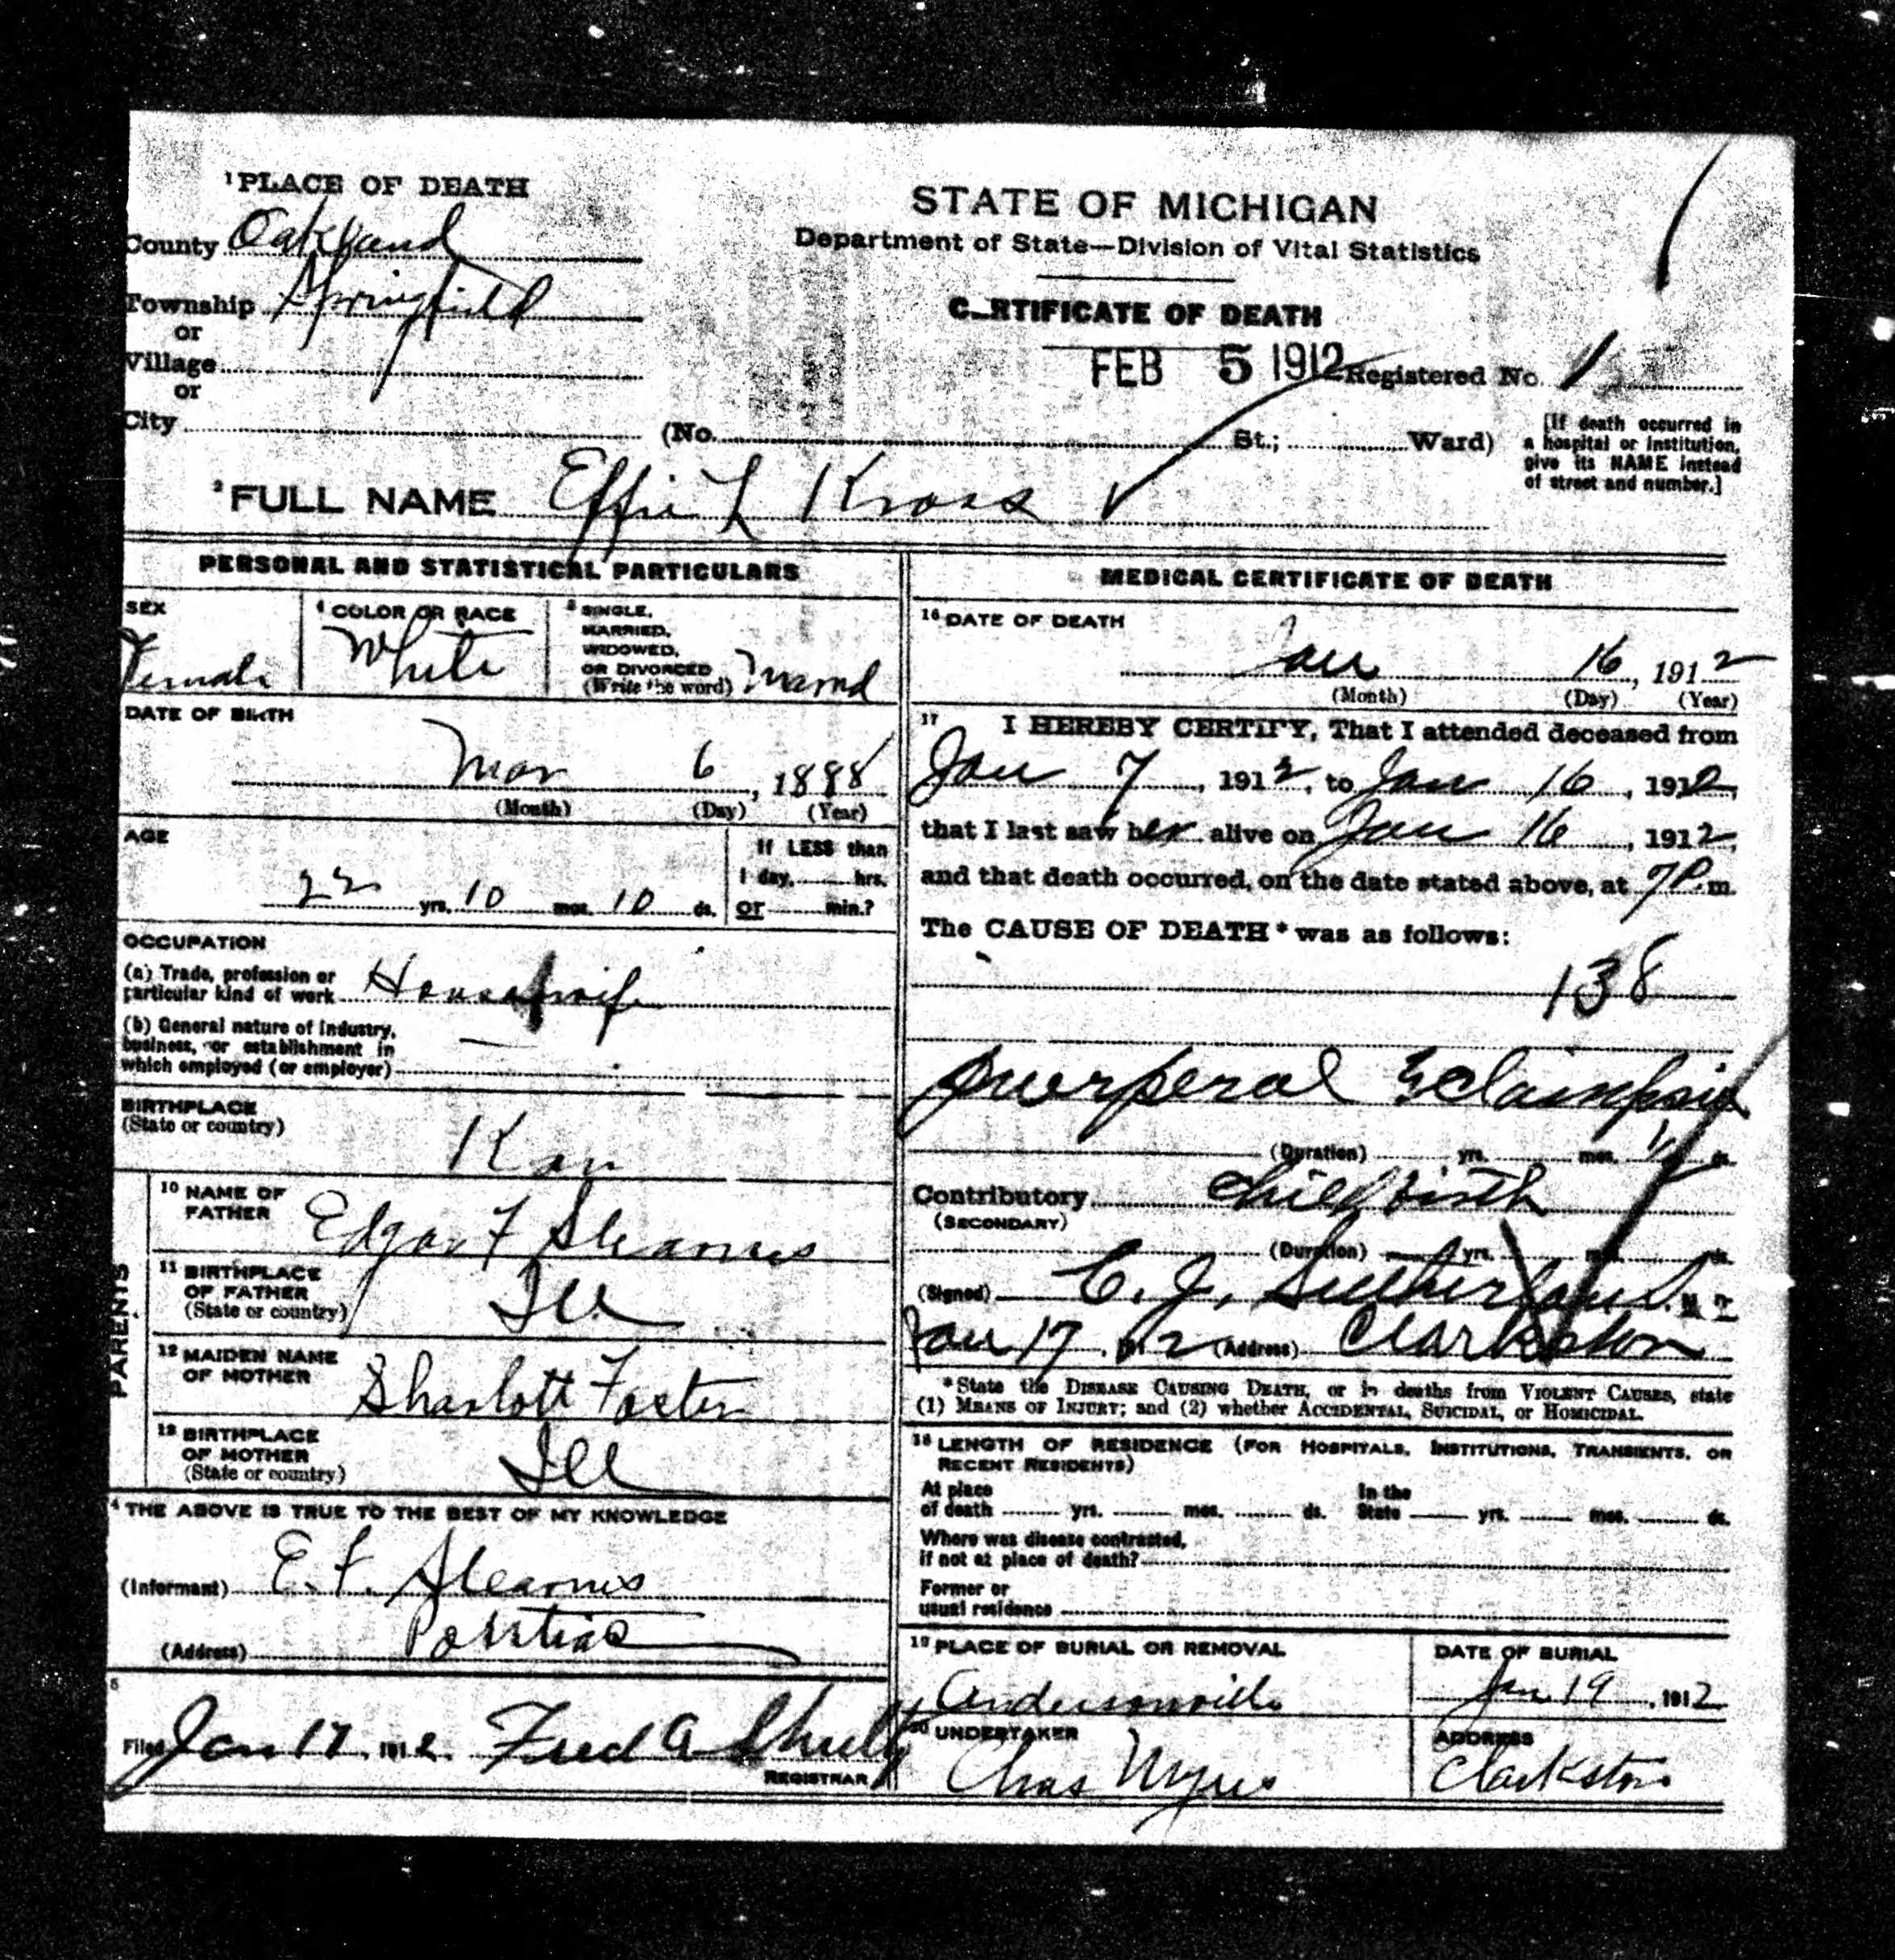 1 PLACE OF DEATH
County Oakland
Township Springfield
or
Village
or
City
STATE OF MICHIGAN
Department of State—Division of Vital Statistics
CERTIFICATE OF DEATH
FEB 5 1912
Registered No. 1
(No. St.; Ward)
[If death occurred in
a hospital or institution,
give its NAME instead
of street and number.]
2 FULL NAME Effie L Kross
PERSONAL AND STATISTICAL PARTICULARS
SEX
Female
4 COLOR OR RACE
White
5 SINGLE,
MARRIED,
WIDOWED,
OR DIVORCED
(Write the word) Married
DATE OF BIRTH
Mar 6, 1888
(Month) (Day) (Year)
AGE
22 yrs. 10 mos. 10 ds.
If LESS than
1 day, hrs.
or min.?
OCCUPATION
(a) Trade, profession or
particular kind of work Housewife
(b) General nature of industry,
business, or establishment in
which employed (or employer)
BIRTHPLACE
(State or country)
Kan
PARENTS
10 NAME OF
FATHER
Edgar F Stearns
11 BIRTHPLACE
OF FATHER
(State or country)
Ill
12 MAIDEN NAME
OF MOTHER
Sharlott Foster
13 BIRTHPLACE
OF MOTHER
(State or country)
Ill
4 THE ABOVE IS TRUE TO THE BEST OF MY KNOWLEDGE
(Informant) E. F. Stearns
(Address) Pontiac
5
Filed Jan 17, 1912. Fred A
REGISTRAR
MEDICAL CERTIFICATE OF DEATH
16 DATE OF DEATH
Jan 16, 1912
(Month) (Day) (Year)
17 I HEREBY CERTIFY, That I attended deceased from
Jan 7, 1912, to Jan 16, 1912,
that I last saw her alive on Jan 16, 1912,
and that death occurred, on the date stated above, at 7 P. m.
The CAUSE OF DEATH* was as follows:
138
Puerperal Eclampsia
(Duration) yrs. mos. ds.
Contributory Childbirth
(SECONDARY)
(Duration) yrs. mos. ds.
(Signed) C. J. Sutherland, M. D.
Jan 17, 1912 (Address) Clarkston
*State the DISEASE CAUSING DEATH, or in deaths from VIOLENT CAUSES, state
(1) MEANS OF INJURY; and (2) whether ACCIDENTAL, SUICIDAL, or HOMICIDAL.
18 LENGTH OF RESIDENCE (FOR HOSPITALS, INSTITUTIONS, TRANSIENTS, OR
RECENT RESIDENTS)
At place
of death yrs. mos. ds.
In the
State yrs. mos. ds.
Where was disease contracted,
if not at place of death?
Former or
usual residence
19 PLACE OF BURIAL OR REMOVAL
Andersonville
DATE OF BURIAL
Jan 19, 1912
20 UNDERTAKER
Chas Myers
ADDRESS
Clarkston